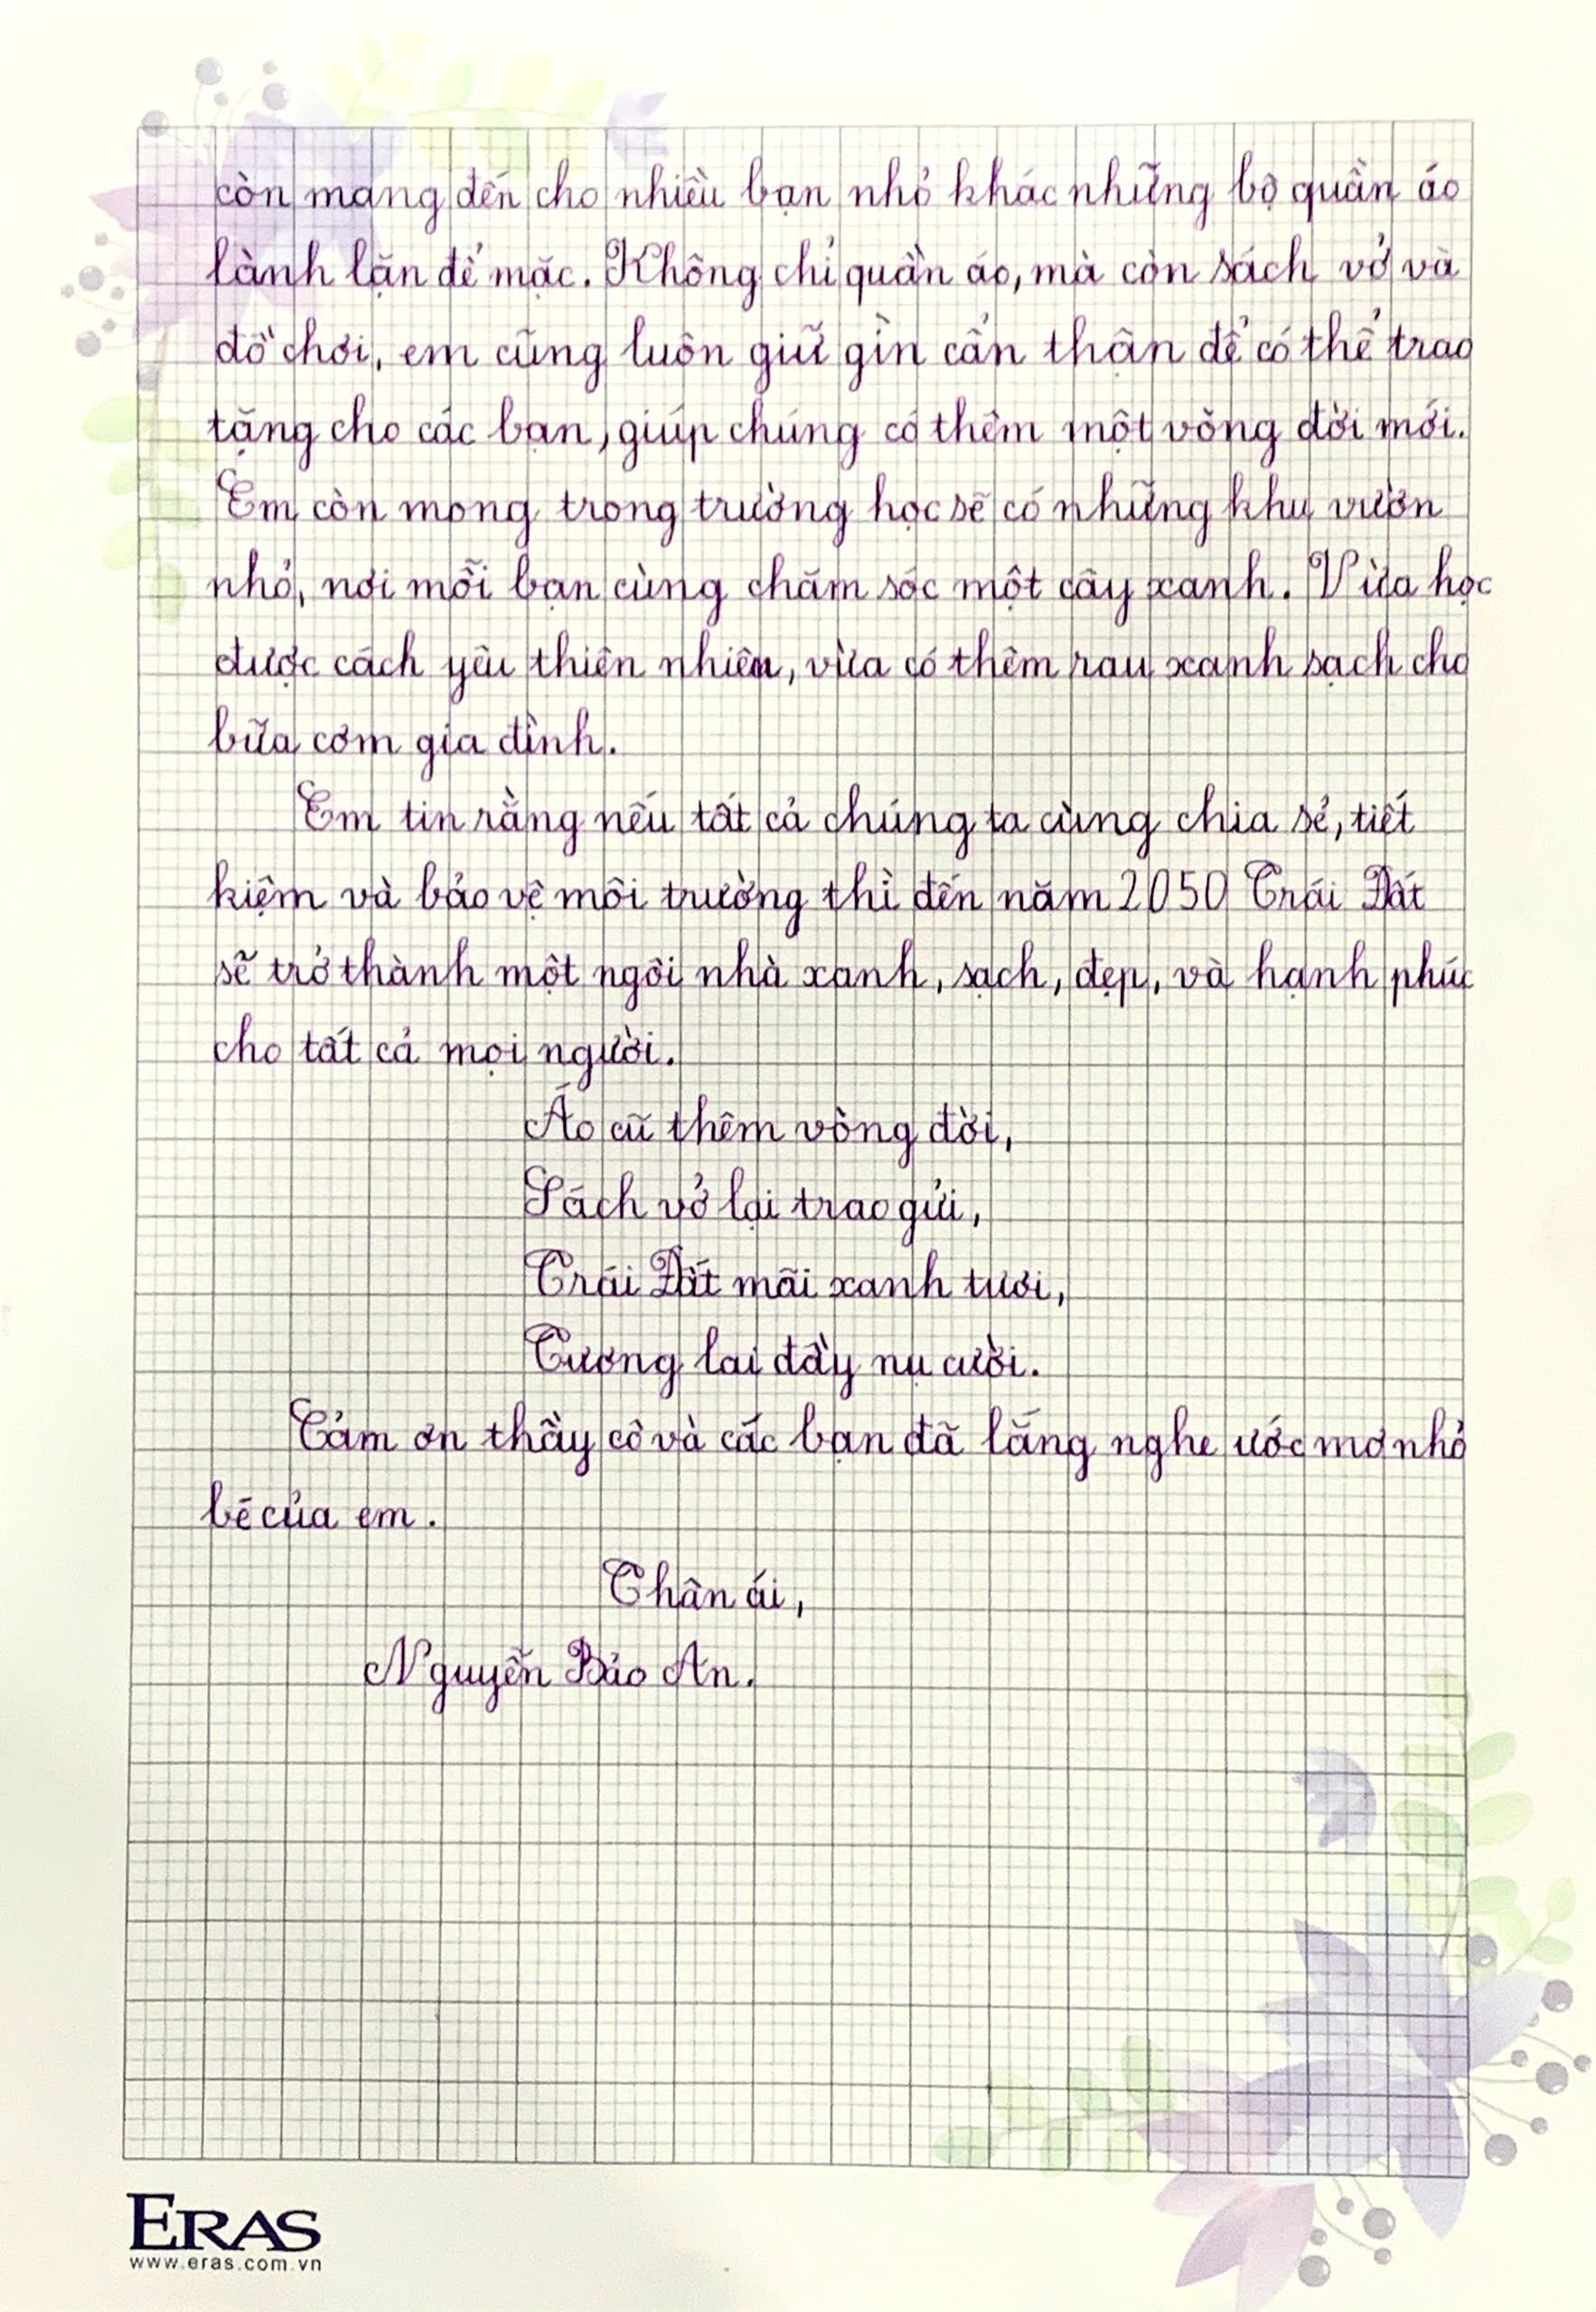 còn mang đến cho nhiều bạn nhỏ khác những bộ quần áo
lành lặn để mặc. Không chỉ quần áo, mà còn sách vở và
đồ chơi, em cũng luôn giữ gìn cẩn thận để có thể trao
tặng cho các bạn, giúp chúng có thêm một vòng đời mới.
Em còn mong trong trường học sẽ có những khu vườn
nhỏ, nơi mỗi bạn cùng chăm sóc một cây xanh. Vừa học
được cách yêu thiên nhiên, vừa có thêm rau xanh sạch cho
bữa cơm gia đình.
Em tin rằng nếu tất cả chúng ta cùng chia sẻ, tiết
kiệm và bảo vệ môi trường thì đến năm 2050 Trái Đất
sẽ trở thành một ngôi nhà xanh, sạch, đẹp, và hạnh phúc
cho tất cả mọi người.
Áo cũ thêm vòng đời,
Sách vở lại trao gửi,
Trái Đất mãi xanh tươi,
Tương lai đầy nụ cười.
Cảm ơn thầy cô và các bạn đã lắng nghe ước mơ nhỏ
bé của em.
Thân ái,
Nguyễn Bảo An.
ERAS
www.eras.com.vn